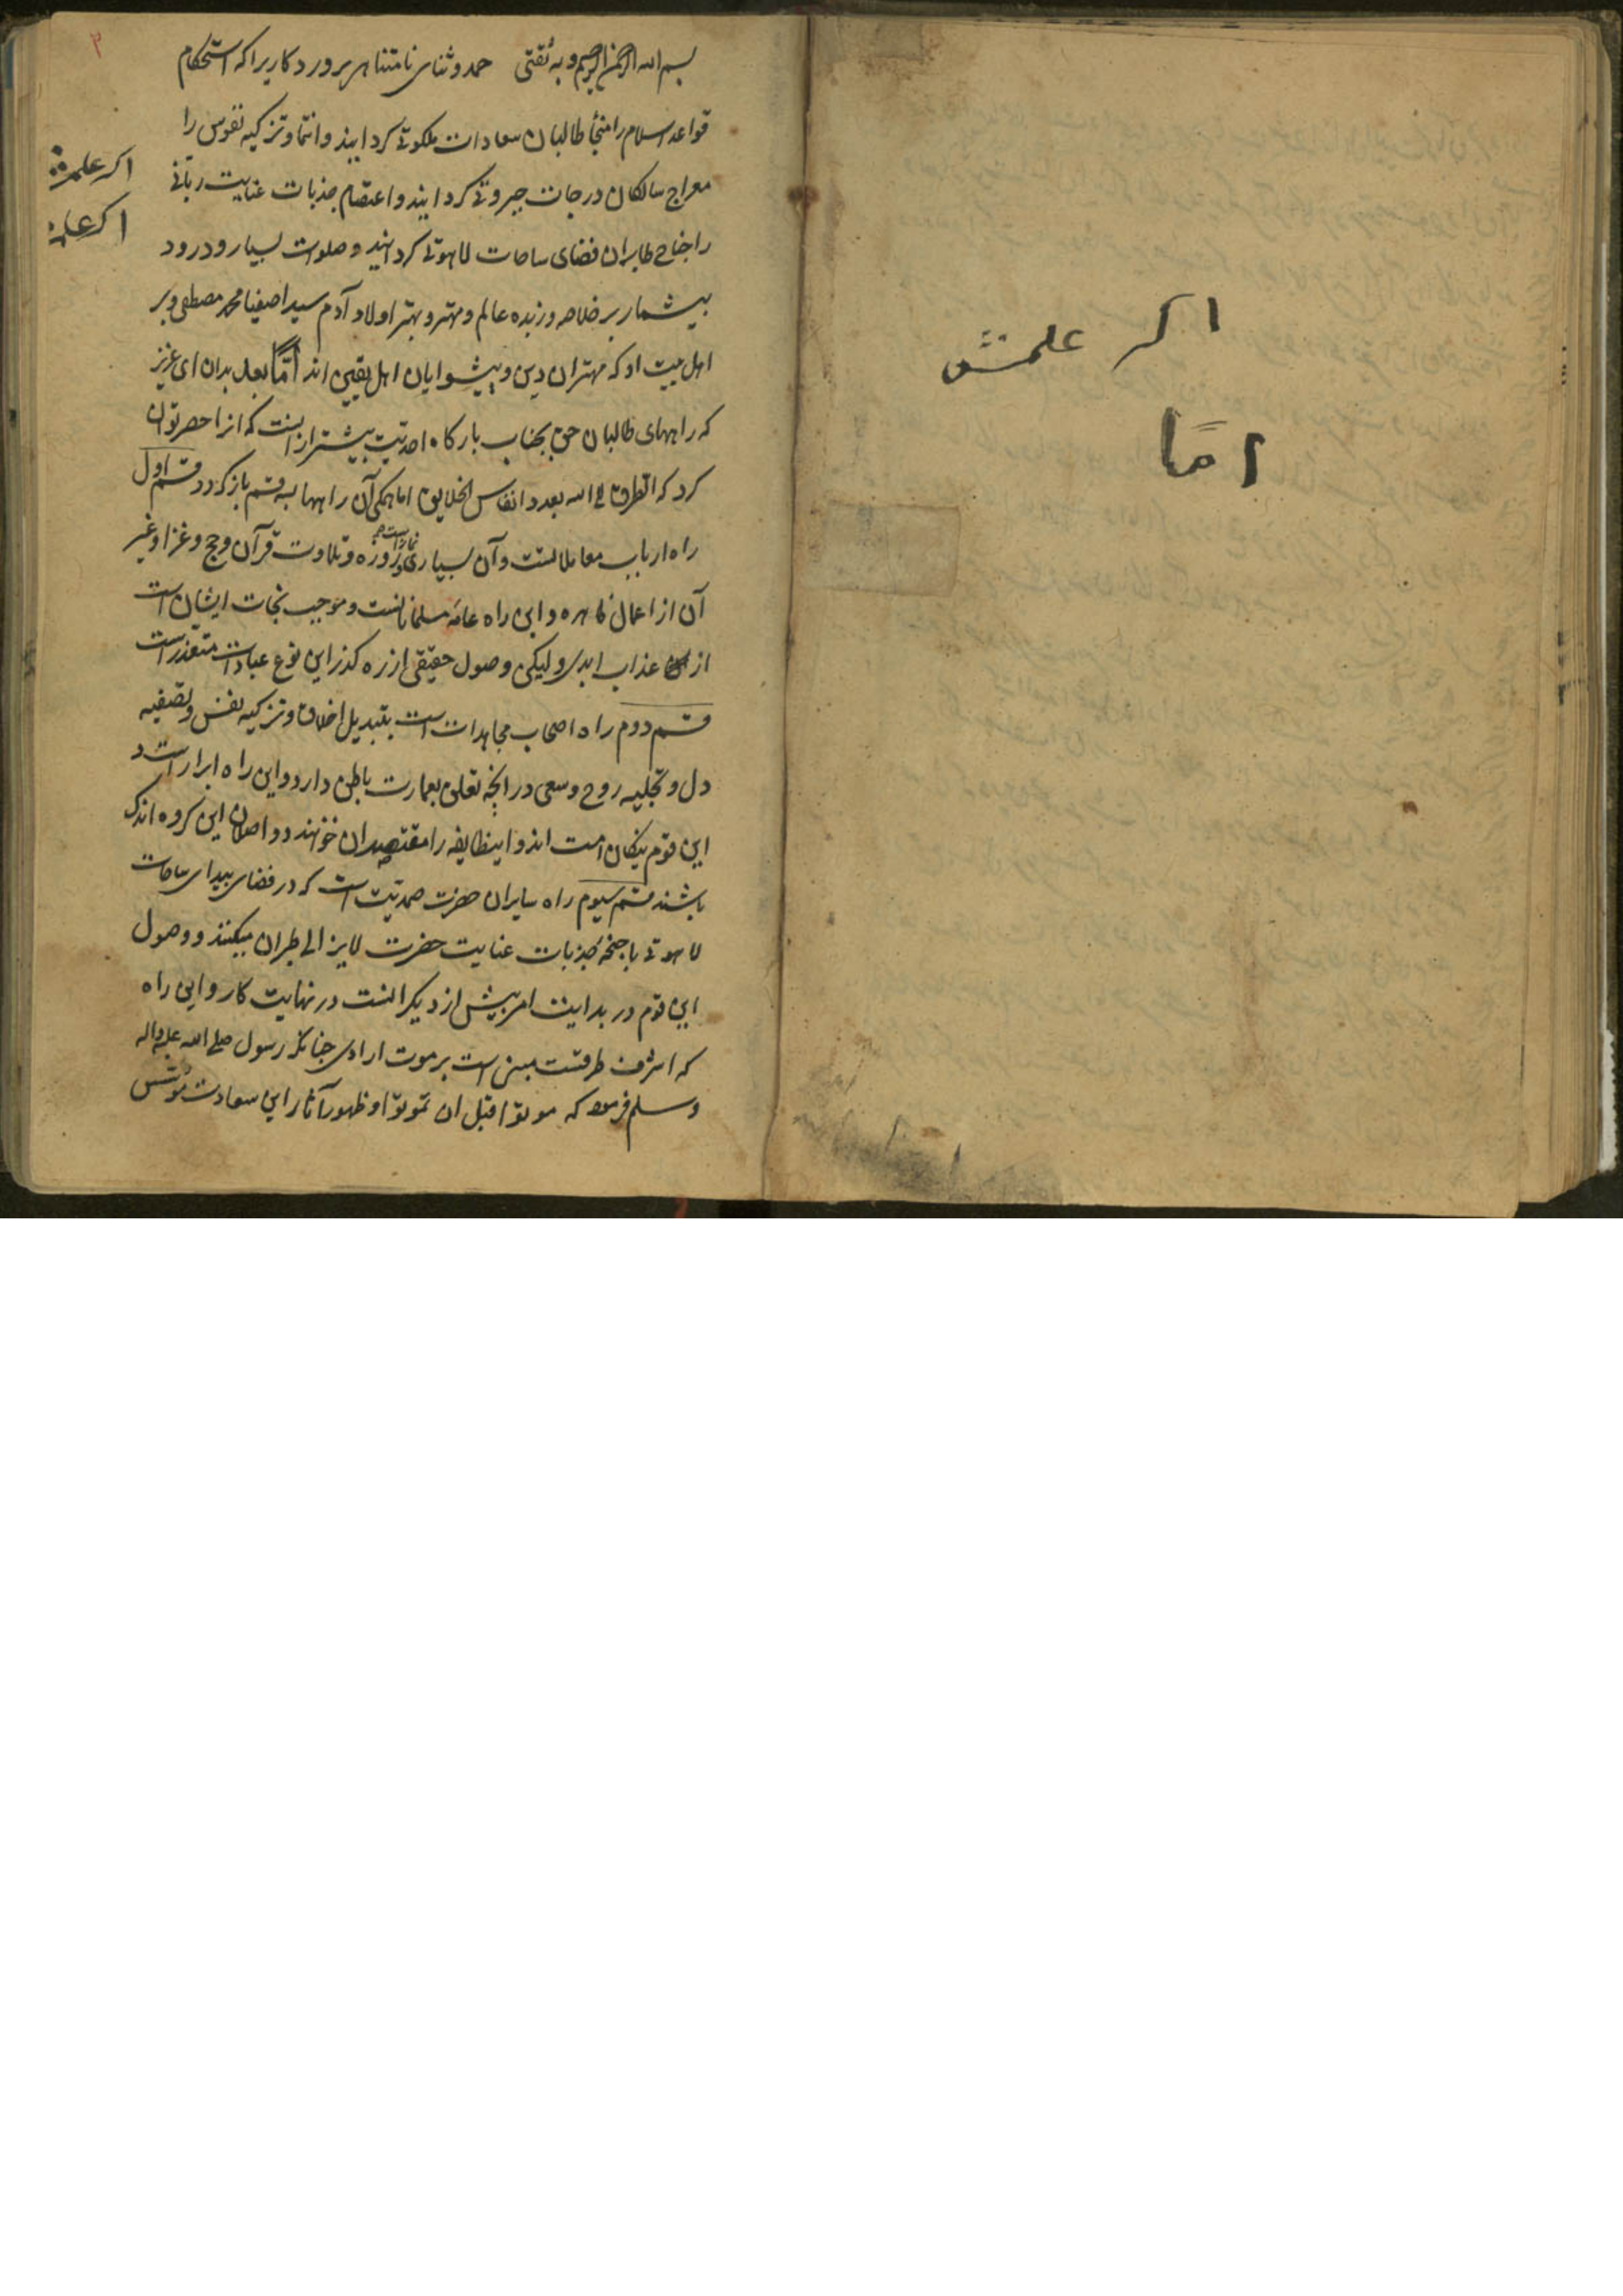 اکر علمش
اما
بسم الله الرحمن الرحیم و به ثقتی حمد و ثنای نامتناهی پروردکاریرا که استحکام
قواعد اسلام را منجأ طالبان سعادات ملکوتی کردانید و انتما و تزکیه نفوس را
معراج سالکان درجات جبروتی کردانید و اعتصام جذبات عنایت ربانی
را جناح طایران فضای ساحات لاهوتی کردانید و صلوات بسیار و درود
بیشمار بر خلاصه و زبده عالم و مهتر و بهتر اولاد آدم سید اصفیا محمد مصطفی و بر
اهل بیت او که مهتران دین و پیشوایان اهل یقین اند امّا بعد بدان ای عزیز
که راههای طالبان حق بجناب بارکاه احدیت بیشتر از انست که انرا حصر توان
کرد که الطرق الی الله بعدد انفاس الخلایق اما همکی آن راهها بسه قسم باز کردد قسم اول
راه ارباب معاملاتست و آن بسیاری نماز و روزه و تلاوت قرآن و حج و غزا و غیر
آن از اعمال ظاهره و این راه عامه مسلمانانست و موجب نجات ایشان است
از عذاب ابدی ولیکن وصول حقیقی از ره کذر این نوع عبادات متعذر است
قسم دوم راه اصحاب مجاهدات است بتبدیل اخلاق و تزکیه نفس و تصفیه
دل و تجلیه روح و سعی در انچه تعلق بعمارت باطن دارد و این راه ابرار است و
این قوم نیکان امت اند و اینطایفه را مقتصدان خوانند و واصلان این کروه اندک
باشند قسم سیوم راه سایران حضرت صمدیت است که در فضای بیدای ساحات
لاهوتی باجنحه جذبات عنایت حضرت لایزالی طیران میکنند و وصول
این قوم در بدایت امر بیش از دیکرانست در نهایت کار و این راه
که اشرف طرقست مبنی است بر موت ارادی چنانکه رسول صلی الله علیه و اله
و سلم فرمود که موتوا قبل ان تموتوا و ظهور آثار این سعادت مؤسس
اکر علمش
اکر علم
۲